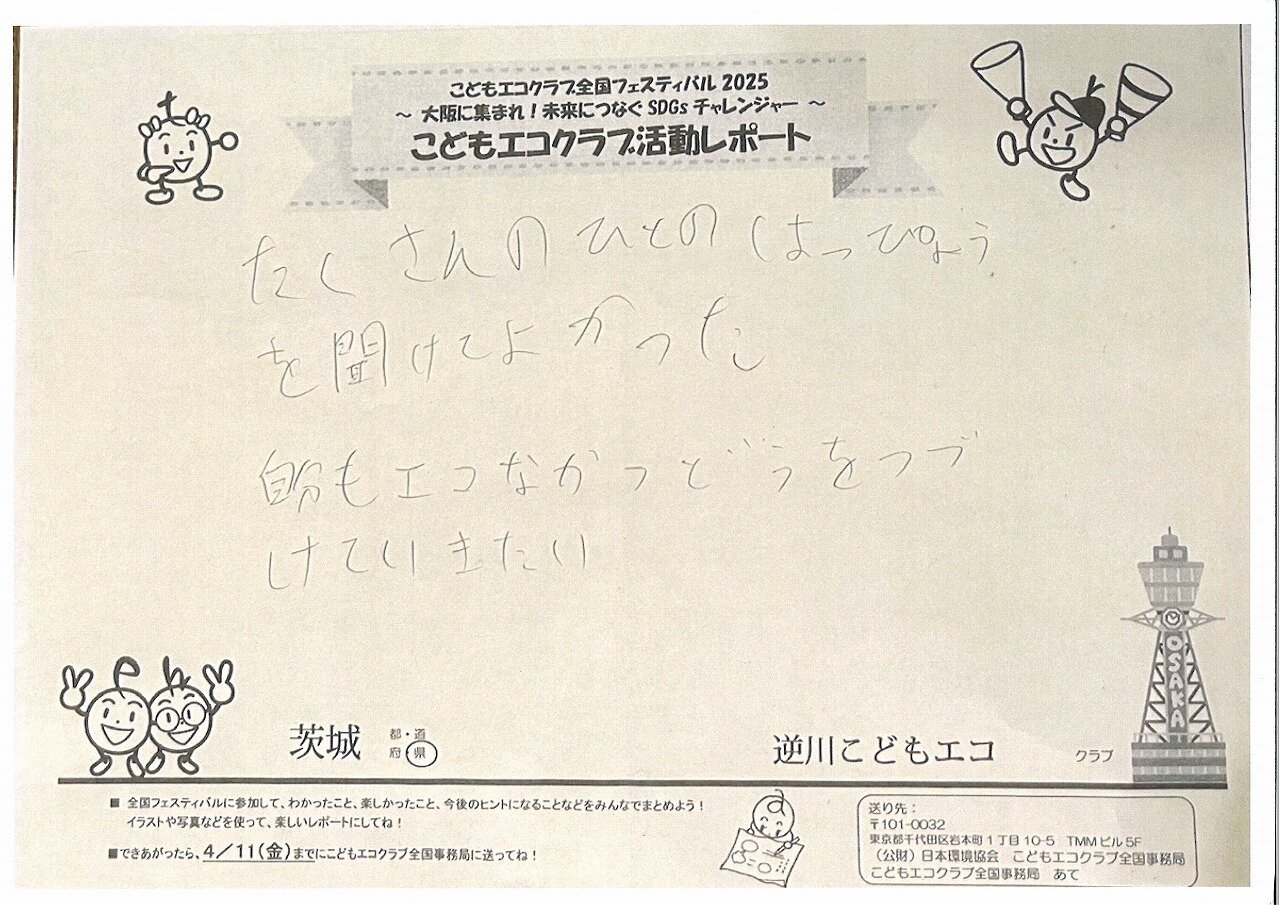 こどもエコクラブ全国フェスティバル 2025
~ 大阪に集まれ！未来につなぐ SDGs チャレンジャー ~
こどもエコクラブ活動レポート
たくさんのひとのはっぴょう
を聞けてよかった
自分もエコなかつどうをつづ
けていきたい
OSAKA
茨城 都・道
府・県
逆川こどもエコ クラブ
■ 全国フェスティバルに参加して、わかったこと、楽しかったこと、今後のヒントになることなどをみんなでまとめよう！
イラストや写真などを使って、楽しいレポートにしてね！
■できあがったら、4／11(金)までにこどもエコクラブ全国事務局に送ってね！
送り先：
〒101-0032
東京都千代田区岩本町１丁目10-5 TMMビル5F
（公財）日本環境協会 こどもエコクラブ全国事務局
こどもエコクラブ全国事務局 あて